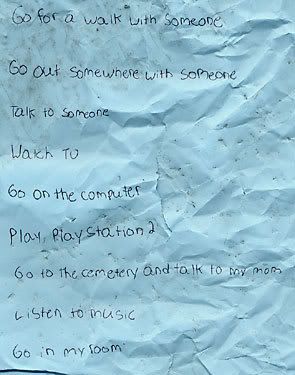 Go for a walk with someone
Go out somewhere with someone
Talk to someone
Watch TV
Go on the computer
Play, Play Station 2
Go to the cemetery and talk to my mom
Listen to music
Go in my room